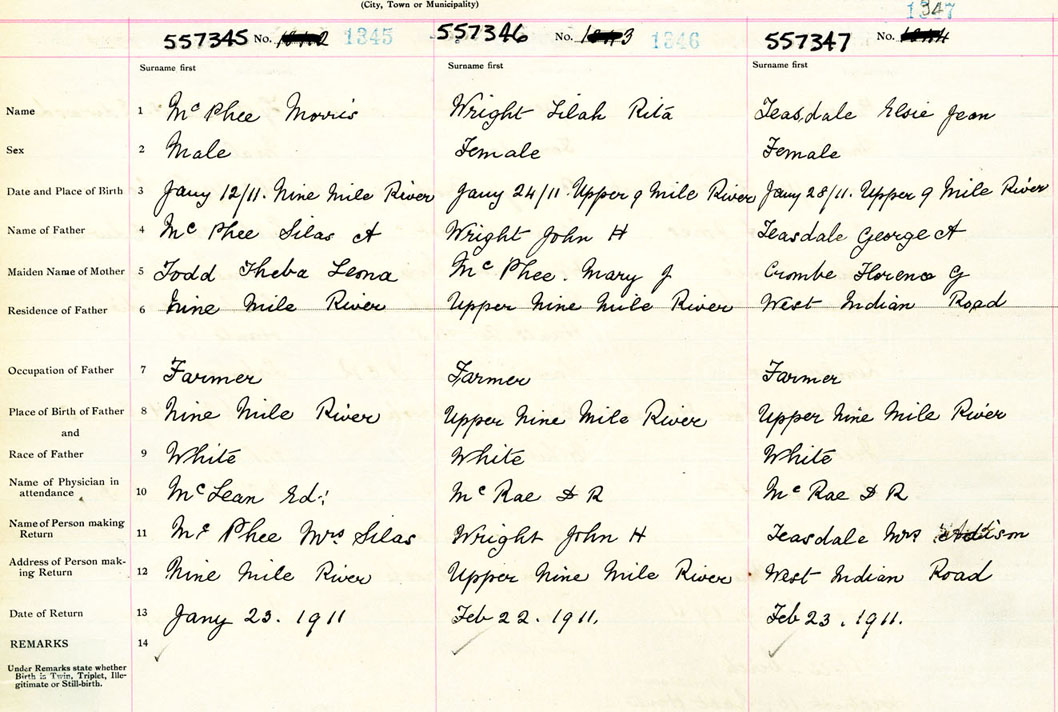 (City, Town or Municipality)
1347
557345 No. 1345 557346 No. 1346 557347 No.
Surname first Surname first Surname first
Name 1 McPhee Morris Wright Lilah Rita Teasdale Elsie Jean
Sex 2 Male Female Female
Date and Place of Birth 3 Jany 12/11. Nine Mile River Jany 24/11. Upper 9 Mile River Jany 28/11. Upper 9 Mile River
Name of Father 4 McPhee Silas A Wright John H Teasdale George A
Maiden Name of Mother 5 Todd Theba Leona McPhee. Mary J Crombe Florence G
Residence of Father 6 Nine Mile River Upper Nine Mile River West Indian Road
Occupation of Father 7 Farmer Farmer Farmer
Place of Birth of Father 8 Nine Mile River Upper Nine Mile River Upper Nine Mile River
and
Race of Father 9 White White White
Name of Physician in
attendance 10 McLean Ed: McRae D R McRae D R
Name of Person making
Return 11 McPhee Mrs Silas Wright John H Teasdale Mrs Addison
Address of Person mak-
ing Return 12 Nine Mile River Upper Nine Mile River West Indian Road
Date of Return 13 Jany 23. 1911 Feb 22. 1911. Feb 23. 1911.
REMARKS 14
Under Remarks state whether
Birth is Twin, Triplet, Ille-
gitimate or Still-birth.